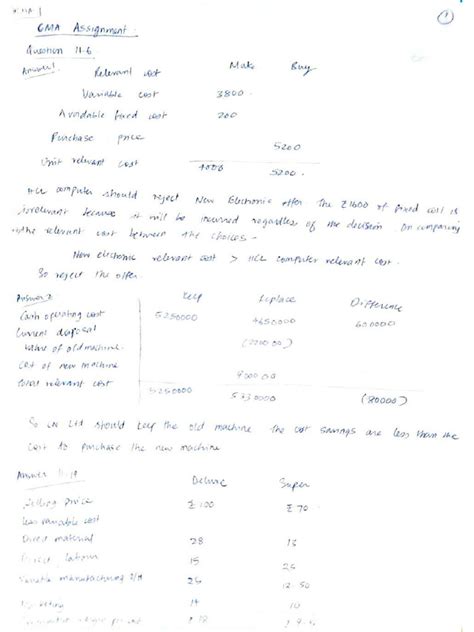 GMA Assignment:
Question 11-6
Answer 1 Relevant cost Make Buy
Variable cost 3800
Avoidable fixed cost 200
Purchase price 5200
Unit relevant cost 5200
HCL computer should reject New Electronic offer The ₹1600 of fixed cost is
irrelevant because it will be incurred regardless of the decision On comparing
the relevant cost between the choices -
New electronic relevant cost > HCL computer relevant cost.
So reject the offer.
Answer 2 Keep Replace Difference
Cash operating cost 5250000 4650000 600000
Current disposal
value of old machine
Cost of new machine 900000
Total relevant cost 5250000 5330000 (80000)
So LN Ltd should keep the old machine the cost savings are less than the
cost to purchase the new machine
Answer 11-19 Deluxe Super
Selling Price ₹100 ₹70
Less variable cost
Direct material 28 13
Direct labour 15 25
Variable manufacturing O/H 25 12.50
Marketing 14 10
₹18